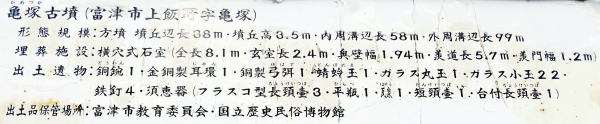 亀塚古墳(富津市上飯野字亀塚)
形態規模:方墳 墳丘辺長38m・墳丘高3.5m・内周溝辺長58m・外周溝辺長99m
埋葬施設:横穴式石室(全長8.1m・玄室長2.4m・奥壁幅1.94m・羨道長5.7m・羨門幅1.2m)
出土遺物:銅鋺1・金銅製耳環1・銅製弓弭1・蜻蛉玉1・ガラス丸玉1・ガラス小玉22・
鉄釘4・須恵器(フラスコ型長頸壷3・平瓶1・𤭯1・短頸壷1・台付長頸壷1)
出土品保管場所:富津市教育委員会・国立歴史民俗博物館